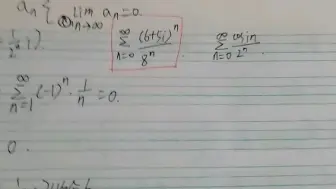 an { lim n→∞ an = 0.
∞ Σ n=0 (6+5i)^n / 8^n ∞ Σ n=0 cos in / 2^n
∞ Σ n=1 (-1)^n · 1/n = 0.
0.